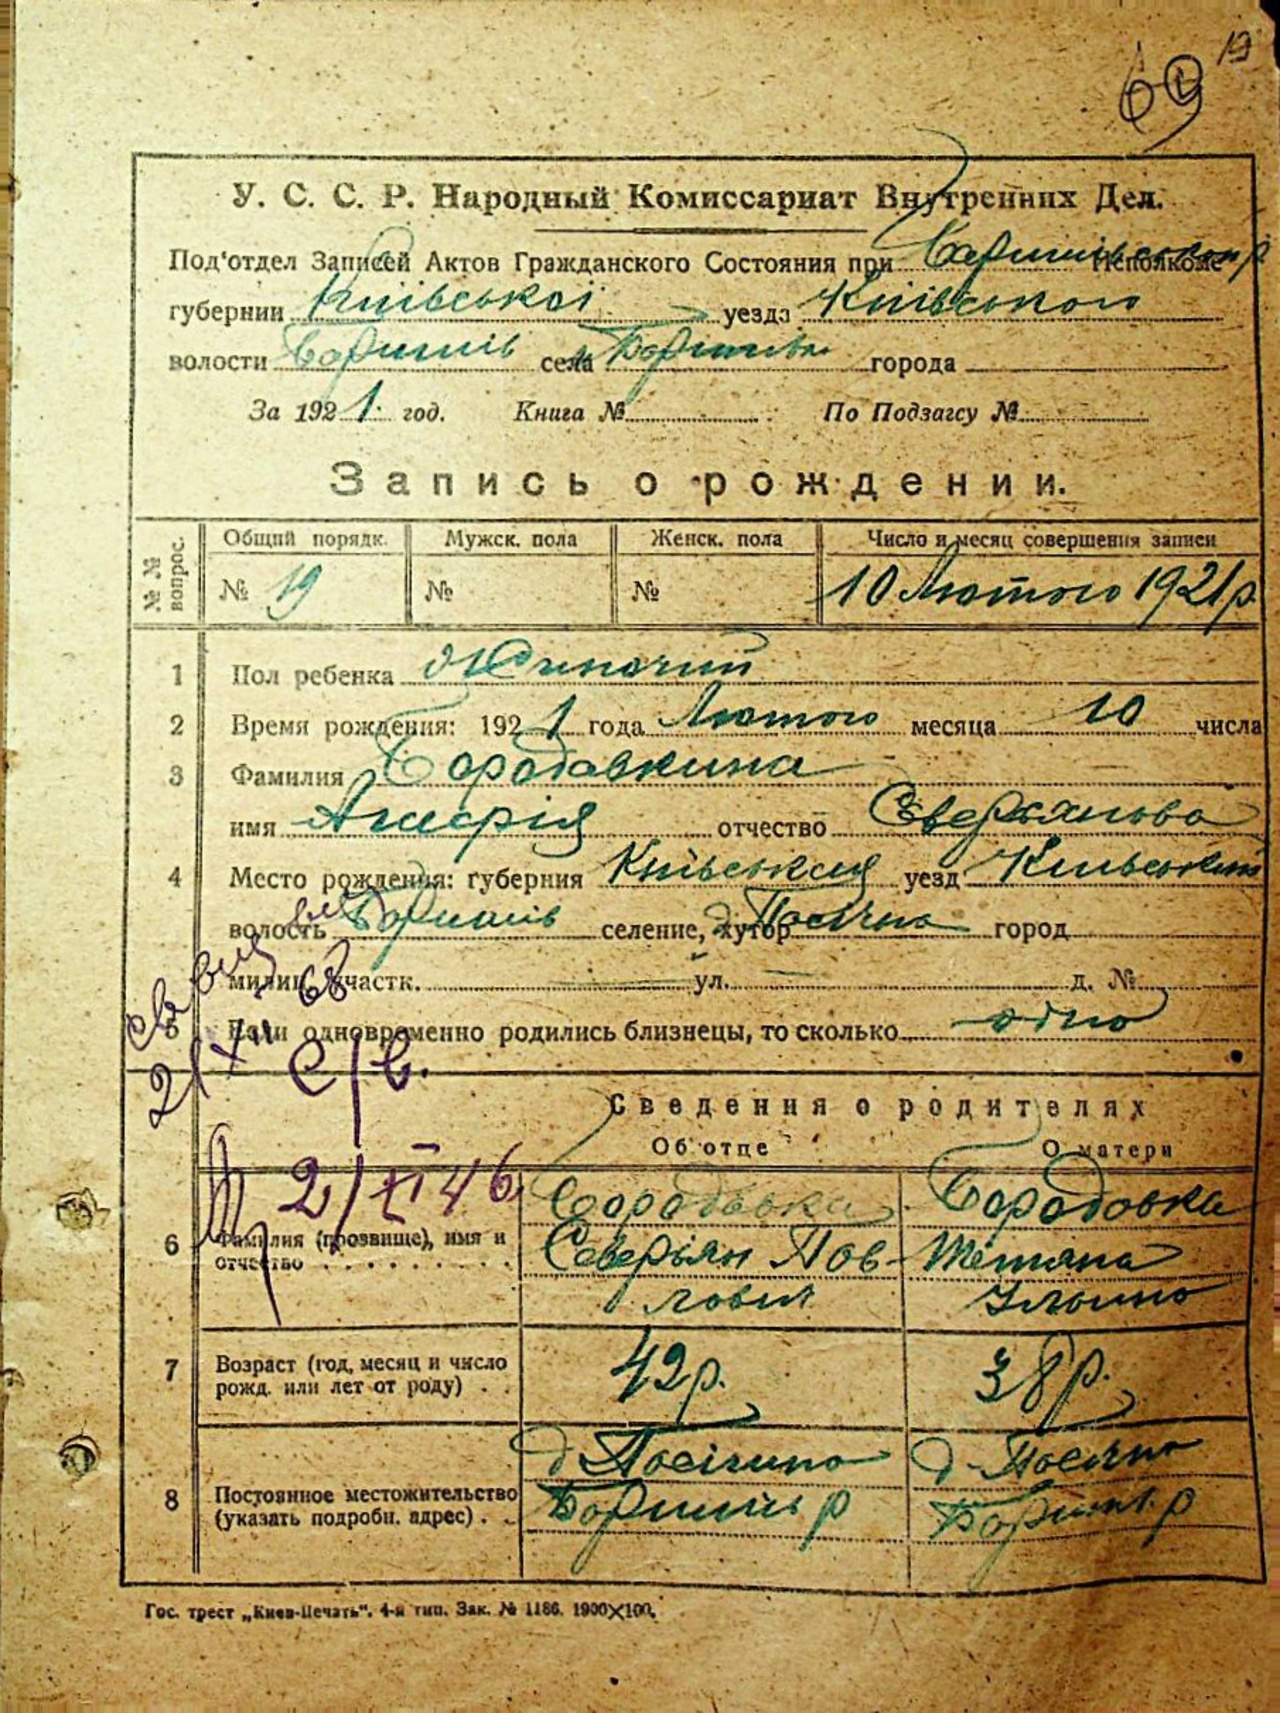 19
69
У. С. С. Р. Народный Комиссариат Внутренних Дел.
Под'отдел Записей Актов Гражданского Состояния при Исполкоме
губернии Київської уезда Київського
волости села города
За 1921 год. Книга № По Подзагсу №
Запись о рождении.
№№ вопрос. Общий порядк. Мужск. пола Женск. пола Число и месяц совершения записи
№ 19 № № 10 Лютого 1921 р.
1 Пол ребенка Жиночий
2 Время рождения: 1921 года Лютого месяца 10 числа
3 Фамилия Бородавкина
имя отчество Северьянова
4 Место рождения: губерния Київська уезд Київський
волость селение, хутор город
милиц. участк. ул. д. №
5 Если одновременно родились близнецы, то сколько одно
с/в.
Сведения о родителях
Об отце О матери
2/XI 46
6 Фамилия (прозвище), имя и отчество Бородавка Бородовка
Северьян Пав- Тетяна
лович Ульяно
7 Возраст (год, месяц и число рожд. или лет от роду) 42 р. 38 р.
8 Постоянное местожительство (указать подробн. адрес)
Гос. трест „Киев-Печать". 4-я тип. Зак. № 1186. 1900×100.